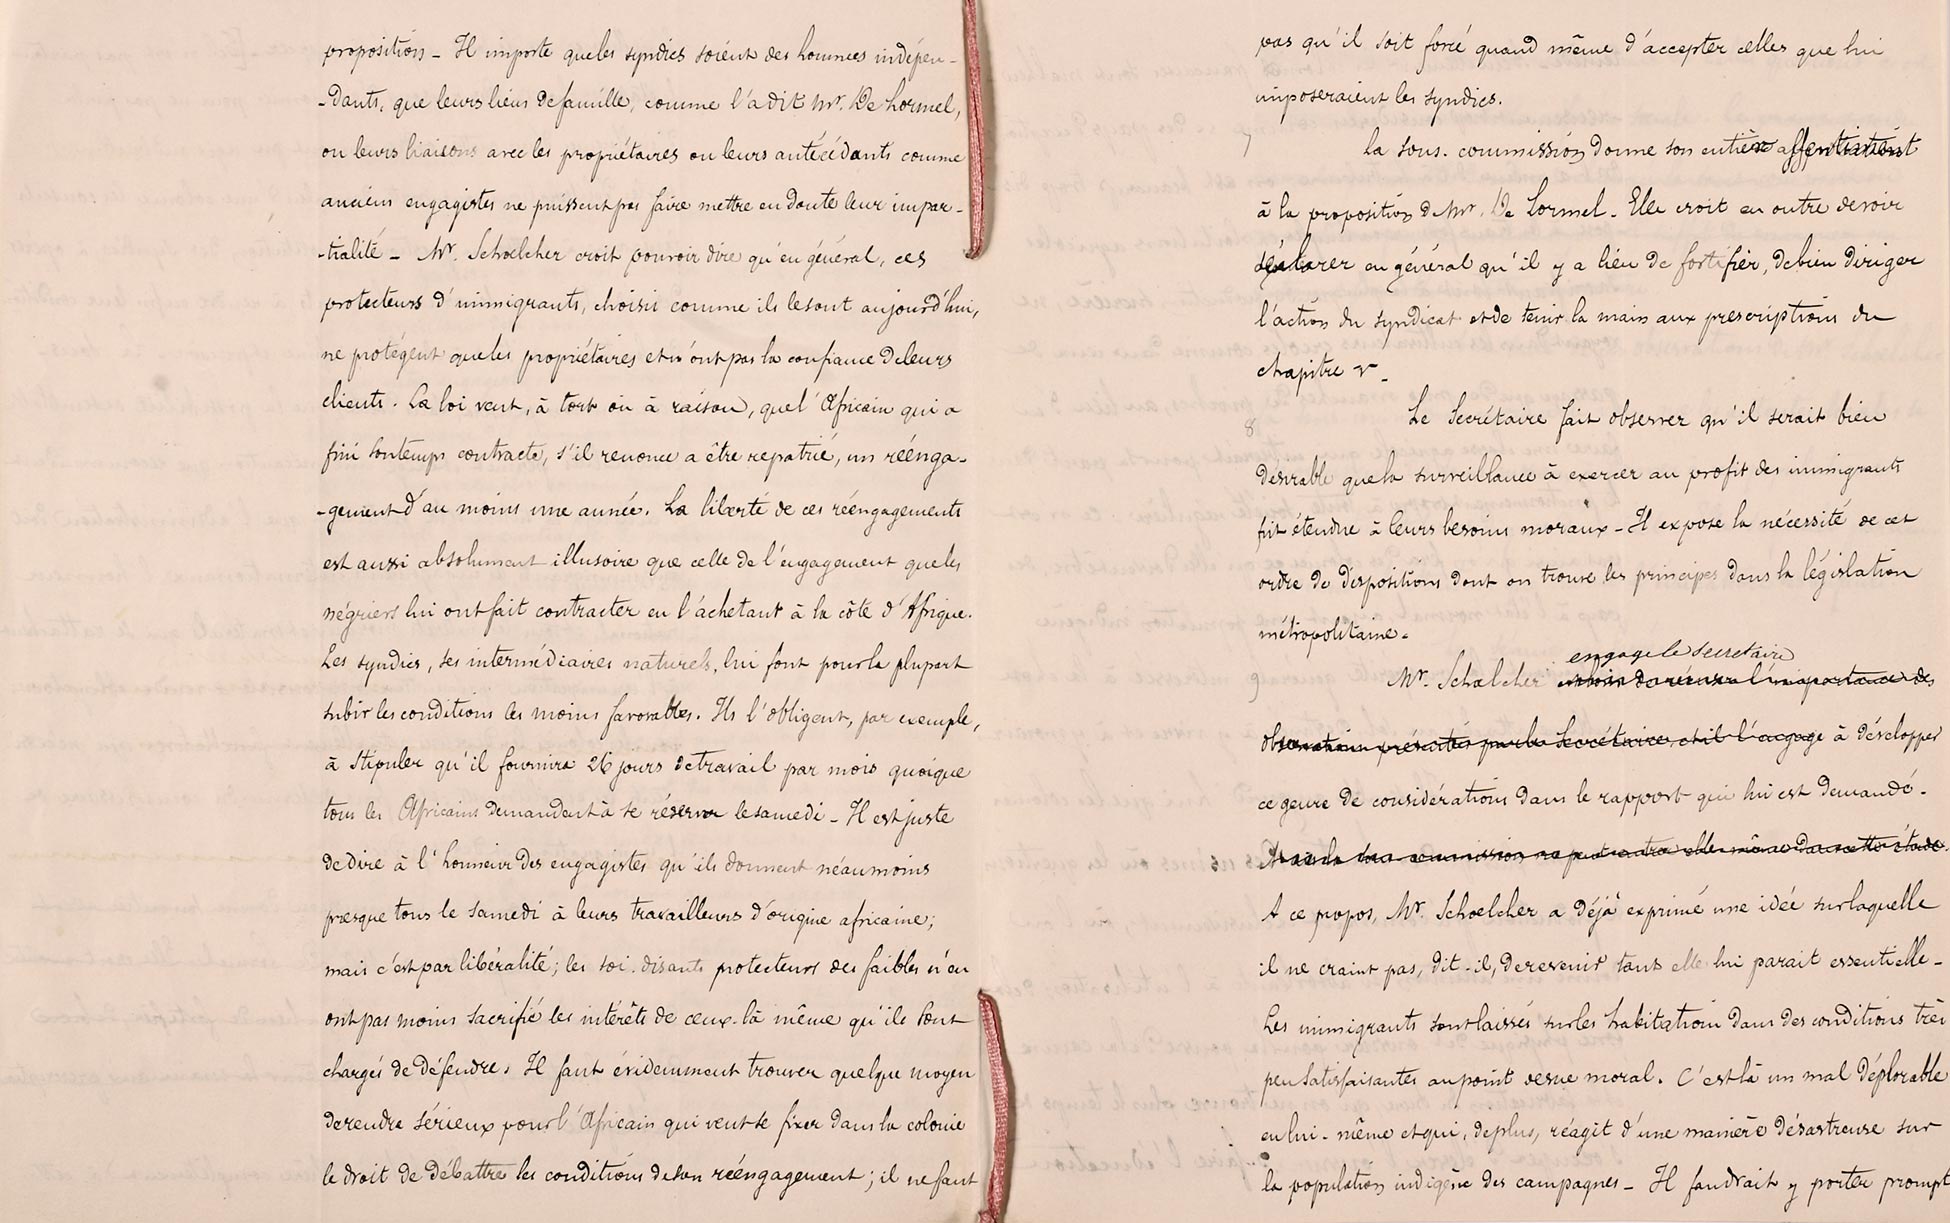 proposition - Il importe que les syndics soient des hommes indépen-
-dants, que leurs liens de famille, comme l'a dit Mr. De Lormel,
ou leurs liaisons avec les propriétaires ou leurs antécédants comme
anciens engagistes ne puissent pas faire mettre en doute leur impar-
-tialité - Mr. Schœlcher croit pouvoir dire qu'en général, ces
protecteurs d'immigrants, choisis comme ils le sont aujourd'hui,
ne protègent que les propriétaires et n'ont pas la confiance de leurs
clients. La loi veut, à tort ou à raison, que l'Africain qui a
fini son temps contracte, s'il renonce a être repatrié, un réenga-
-gement d'au moins une année. La liberté de ces réengagements
est aussi absolument illusoire que celle de l'engagement que les
négriers lui ont fait contracter en l'achetant à la côte d'Afrique.
Les syndics, ses intermédiaires naturels, lui font pour la plupart
subir les conditions les moins favorables. Ils l'obligent, par exemple,
à stipuler qu'il fournira 26 jours de travail par mois quoique
tous les Africains demandent à se réserver le samedi - Il est juste
de dire à l'honneur des engagistes qu'ils donnent néaumoins
presque tous le samedi à leurs travailleurs d'origine africaine;
mais c'est par libéralité; les soi-disants protecteurs des faibles n'en
ont pas moins sacrifié les intérêts de ceux-là même qu'ils sont
chargés de défendre. Il faut évidemment trouver quelque moyen
de rendre sérieux pour l'Africain qui veut se fixer dans la colonie
le droit de débattre les conditions de son réengagement; il ne faut
pas qu'il soit forcé quand même d'accepter celles que lui
imposeraient les syndics.
7 la sous-commission donne son entière
à la proposition de Mr. De Lormel - Elle croit en outre devoir
déclarer en général qu'il y a lieu de fortifier, de bien diriger
l'action du syndicat et de tenir la main aux prescriptions du
chapitre V.
8 Le Secrétaire fait observer qu'il serait bien
désirable que la surveillance à exercer au profit des immigrants
fut étendue à leurs besoins moraux - Il expose la nécessité de cet
ordre de dispositions dont on trouve les principes dans la législation
métropolitaine.
engage le secretaire
9 Mr. Schœlcher l'importance des
observations présentées par le Secrétaire, et il l'engage à développer
ce genre de considérations dans le rapport qui lui est demandé -
la sous-commission ne peut entrer elle-même dans cette étude.
A ce propos, Mr. Schœlcher a déjà exprimé une idée sur laquelle
il ne craint pas, dit-il, de revenir tant elle lui parait essentielle -
Les immigrants sont laissés sur les habitations dans des conditions très
peu satisfaisantes au point de vue moral. C'est là un mal déplorable
en lui-même et qui, de plus, réagit d'une manière désastreuse sur
la population indigène des campagnes - Il faudrait y porter prompt